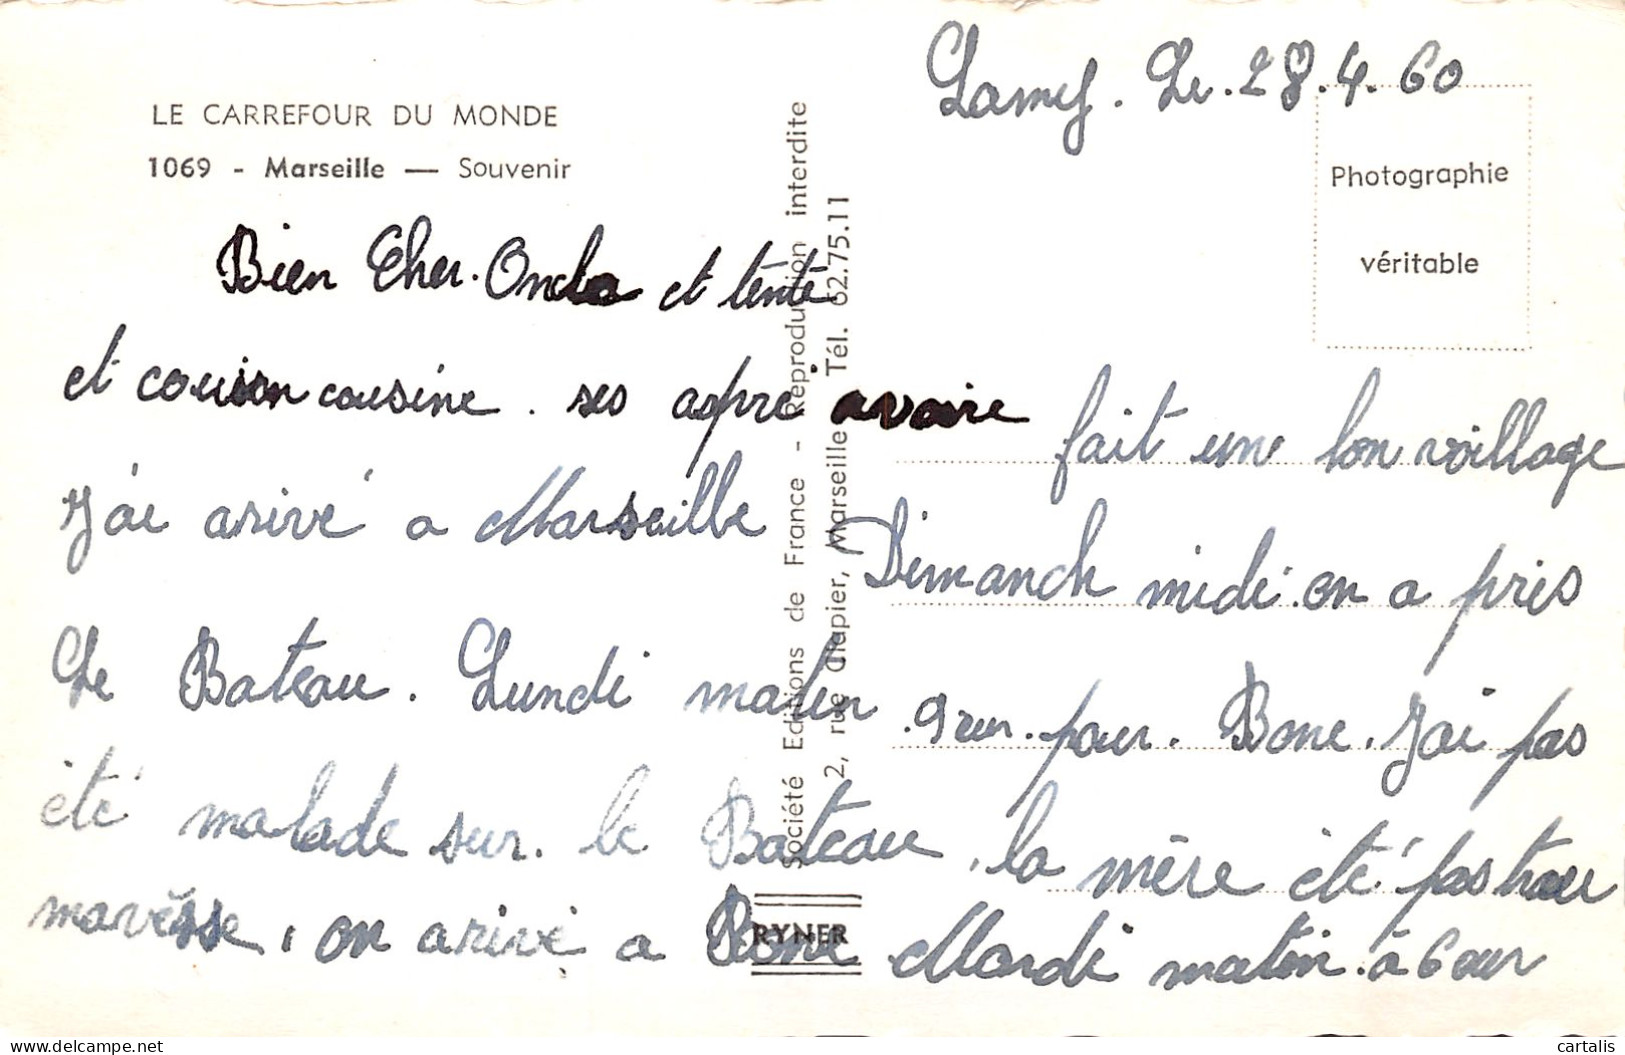 Lamy. Le. 28.4.60
LE CARREFOUR DU MONDE
1069 - Marseille — Souvenir
Photographie
véritable
Société Editions de France - Reproduction interdite
2, rue Clapier, Marseille Tél. 62.75.11
Bien Cher. Oncle et tente
et couison cousine. ses apre avoire fait une bon voillage
J'ai arivé a Marseille Dimanch midi. on a pris
Le Bateau. Lundi matin 9 eur. pour. Bone. J'ai pas
été malade sur. le Bateau, la mère été pas trau
mavèsse, on arivé a Bone Mardi matin. à 6 eur
RYNER
cartalis